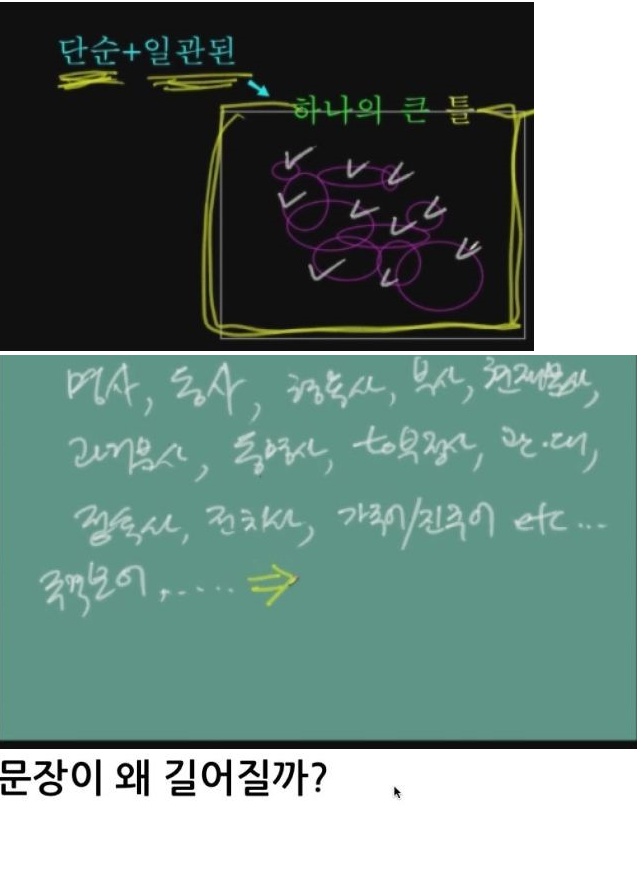 단순+일관된
하나의 큰 틀
명사, 동사, 형용사, 부사, 현재분사,
과거분사, 동명사, to부정사, 관·대,
접속사, 전치사, 가주어/진주어 etc...
주격보어, ..... ⇒
문장이 왜 길어질까?